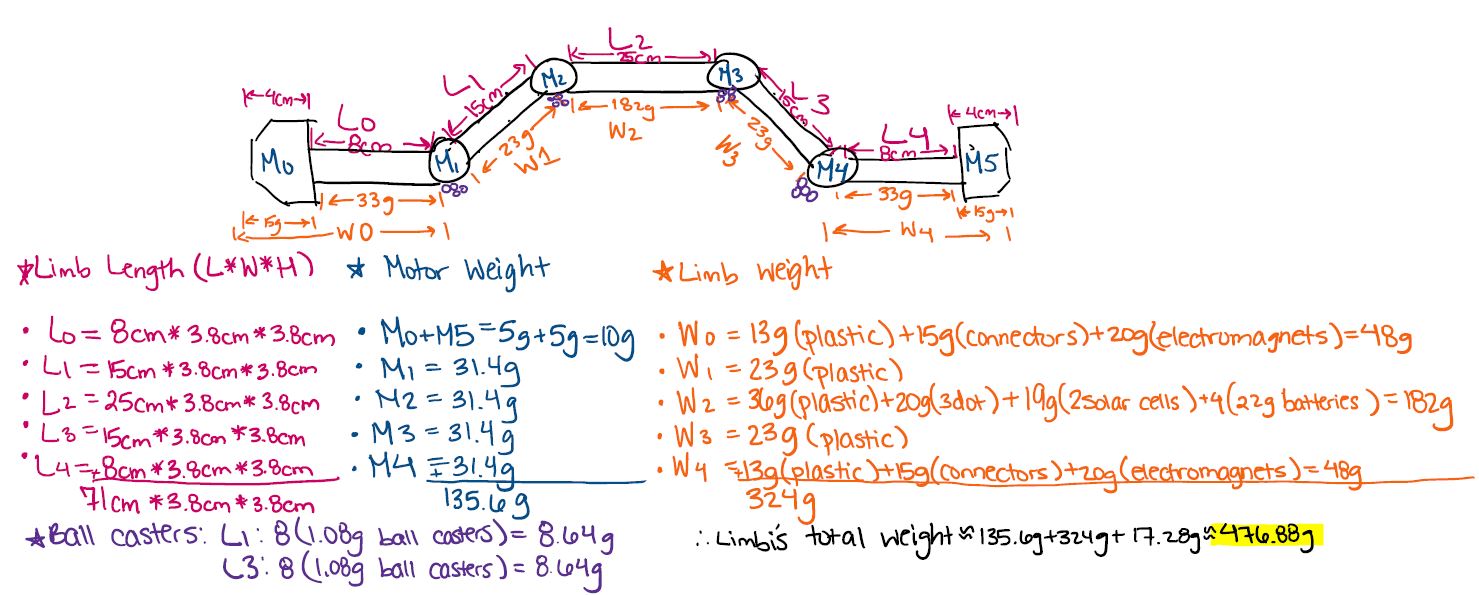 L2
25cm
L1
15cm
M2
M3
L3
15cm
182g
W2
4cm
L0
8cm
M0
M1
23g
W1
23g
W3
L4
8cm
4cm
M4
M5
33g
33g
15g
15g
W0
W4
Limb Length (L*W*H)
• L0 = 8cm * 3.8cm * 3.8cm
• L1 = 15cm * 3.8cm * 3.8cm
• L2 = 25cm * 3.8cm * 3.8cm
• L3 = 15cm * 3.8cm * 3.8cm
• L4 = +8cm * 3.8cm * 3.8cm
71cm * 3.8cm * 3.8cm
★ Motor Weight
• M0+M5 = 5g+5g = 10g
• M1 = 31.4g
• M2 = 31.4g
• M3 = 31.4g
• M4 = +31.4g
135.6g
★ Limb Weight
• W0 = 13g (plastic) + 15g (connectors) + 20g (electromagnets) = 48g
• W1 = 23g (plastic)
• W2 = 36g (plastic) + 20g (3dot) + 19g (2 solar cells) + 4(22g batteries) = 182g
• W3 = 23g (plastic)
• W4 = +13g (plastic) + 15g (connectors) + 20g (electromagnets) = 48g
324g
★ Ball casters: L1: 8(1.08g ball casters) = 8.64g
L3: 8(1.08g ball casters) = 8.64g
∴ Limbi's total weight ≈ 135.6g + 324g + 17.28g ≈ 476.88g